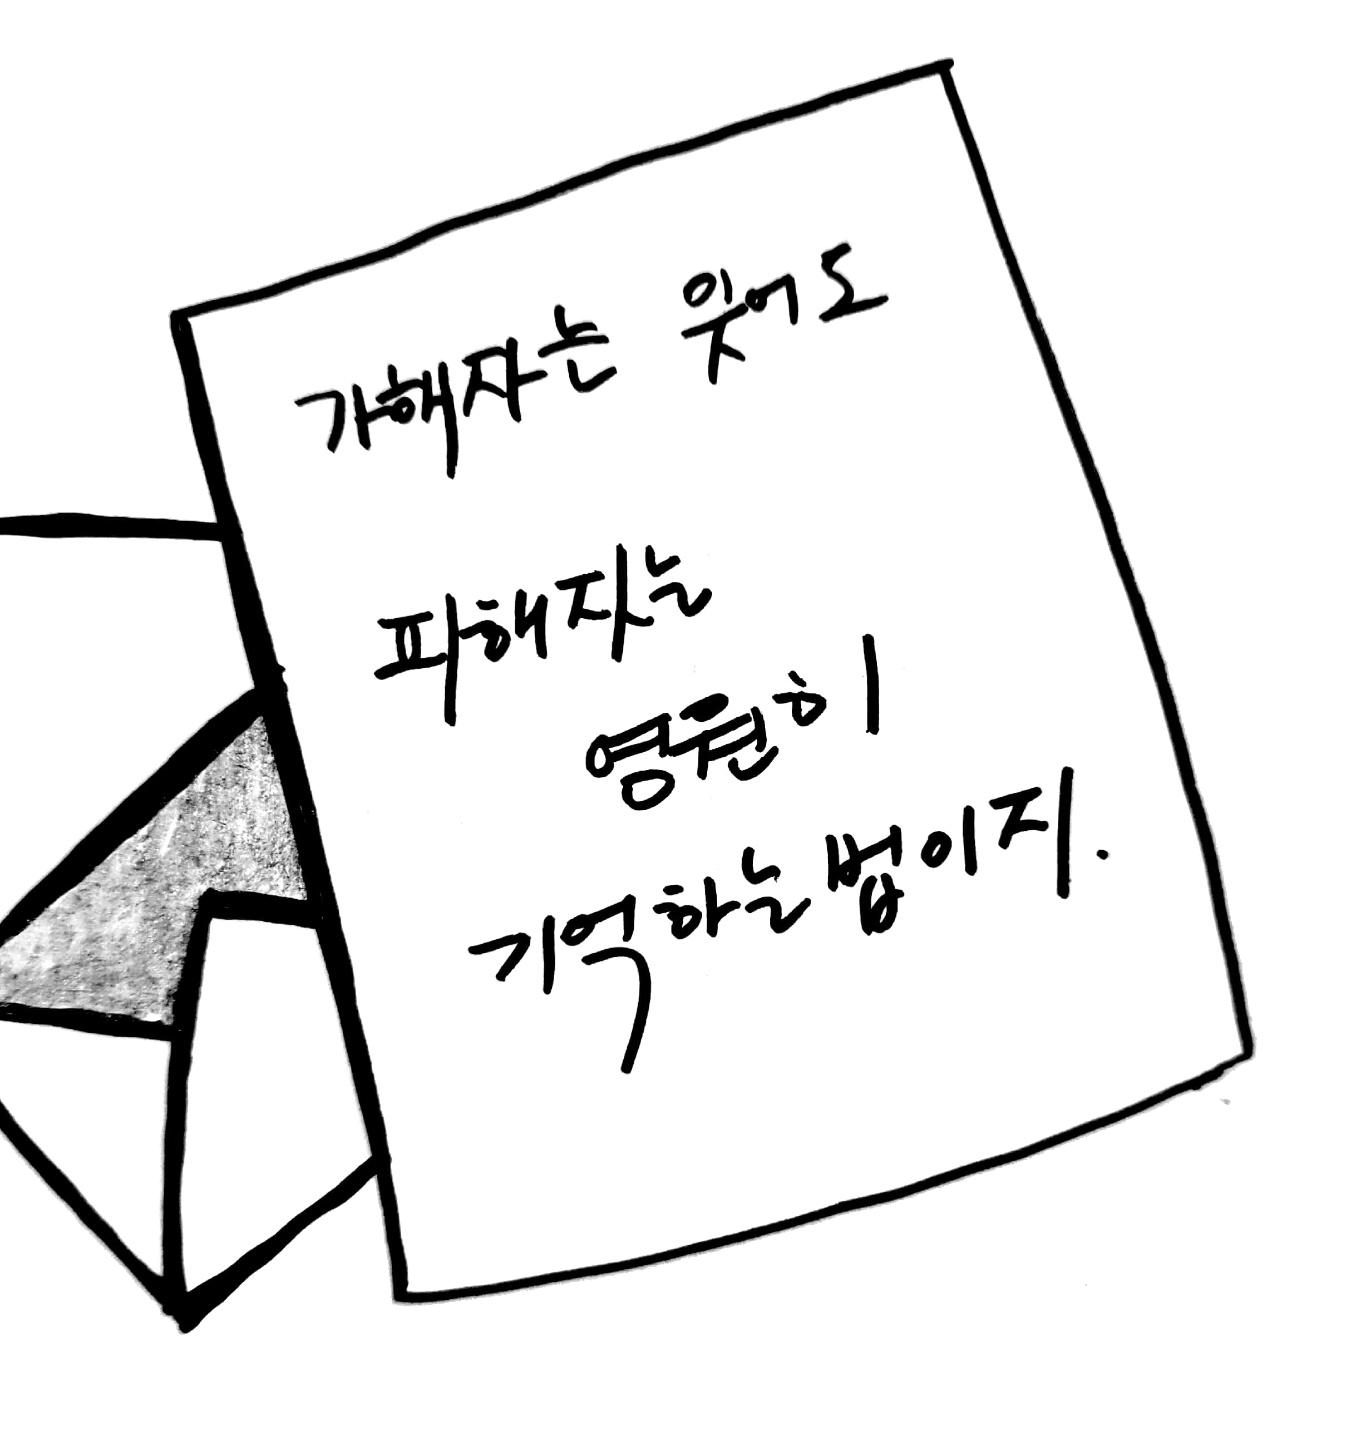 가해자는 잊어도
피해자는
영원히
기억하는법이지.